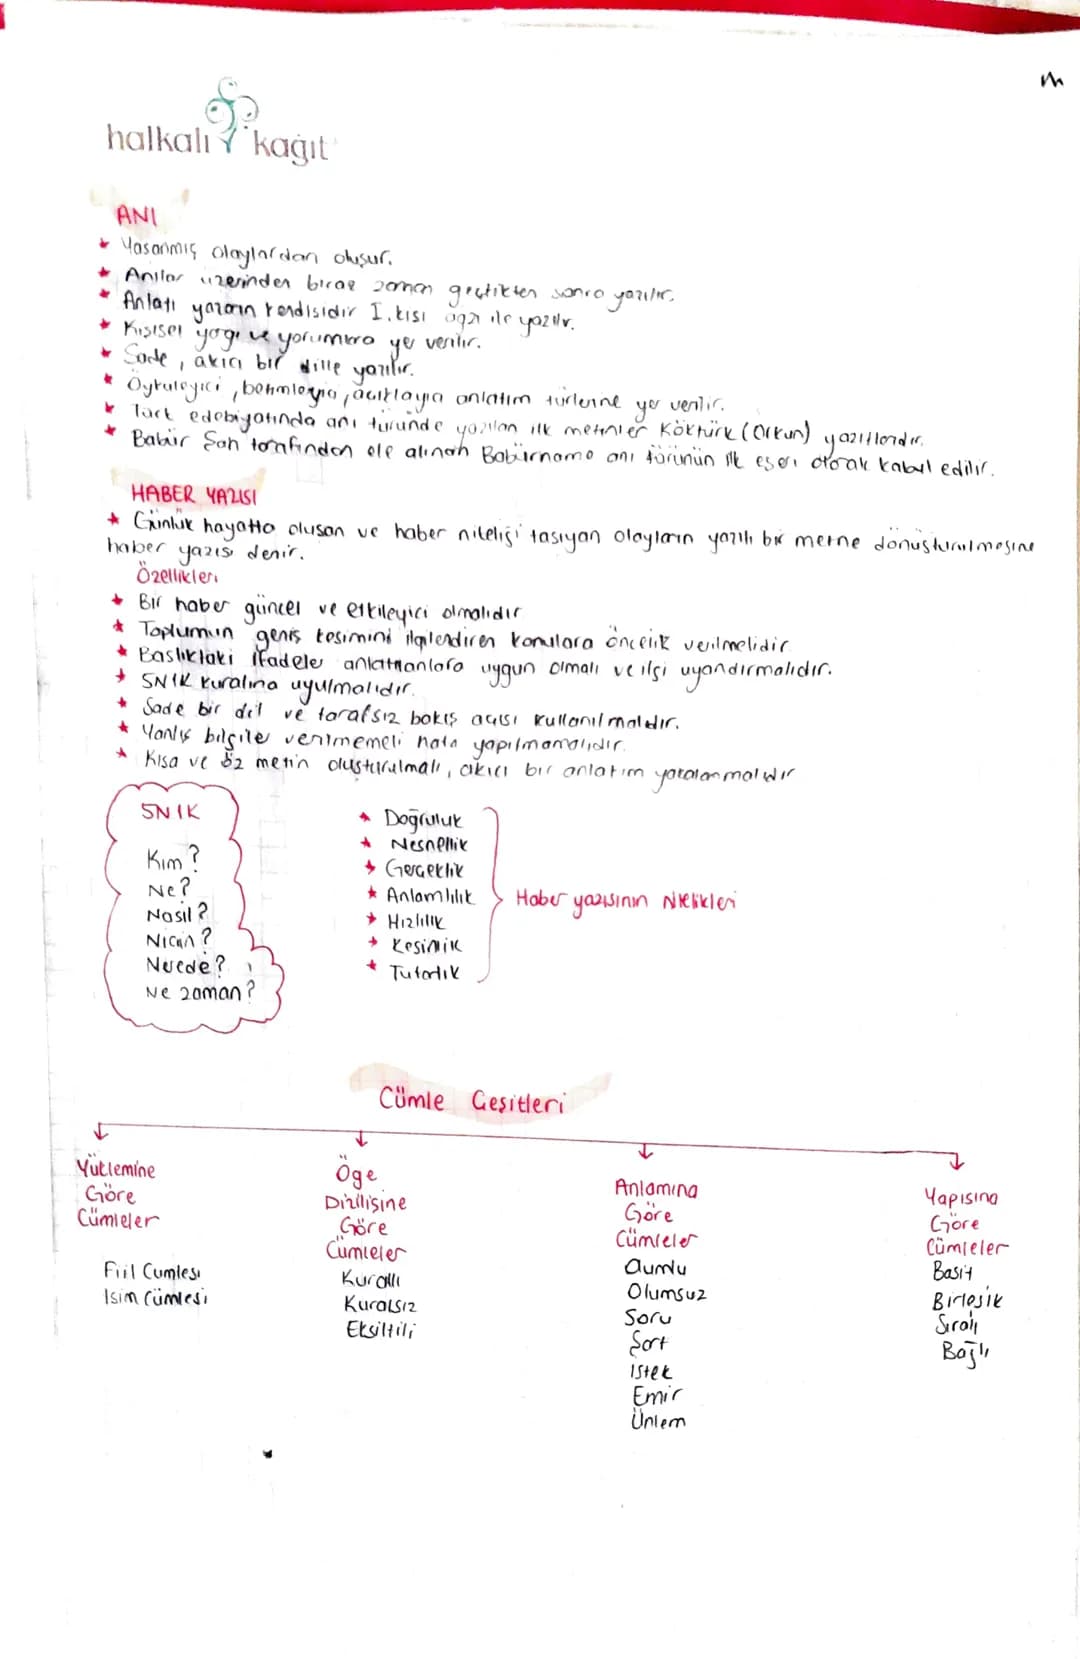 halkalı kağıt
ANI
Yaşanmış olaylardan oluşur.
Anılar üzerinden biraz zaman geçtikten sonra yazılır.
Anlatı yazarın kendisidir I.kişi ağzı ile yazılır.
Kişisel yargı ve yorumlara yer verilir.
Sade, akıcı bir dille yazılır.
Öyküleyici, betimleyici, açıklayıcı anlatım türlerine yer verilir.
Türk edebiyatında anı türünde yazılan ilk metinler Köktürk (Orkun) yazıtlarıdır.
Babür Şah tarafından ele alınan Babürname anı türünün ilk eseri olarak kabul edilir.
HABER YAZISI
Günlük hayatta oluşan ve haber niteliği taşıyan olayların yazılı bir metne dönüştürülmesine
haber yazısı denir.
Özellikleri
Bir haber güncel ve etkileyici olmalıdır
Toplumun geniş kesimini ilgilendiren konulara öncelik verilmelidir
Başlıktaki ifadeler anlatılanlara uygun olmalı ve ilgi uyandırmalıdır.
5N1K kuralına uyulmalıdır.
Sade bir dil ve tarafsız bakış açısı kullanılmalıdır.
Yanlış bilgile verilmemeli hata yapılmamalıdır.
Kısa ve öz metin oluşturulmalı, akıcı bir anlatım
5N1K
Kim?
Ne?
Nasıl?
Niçin?
Nerede?
Ne zaman?
Doğruluk
Nesnellik
Gerçeklik
Anlamlılık
Hızlılık
Kesinlik
Tutarlık
Haber yazısının Nitelikleri
Cümle Çeşitleri
Yüklemine
Göre
Cümleler
Fiil Cümlesi
İsim Cümlesi
Öge
Dizilişine
Göre
Cümleler
Kurallı
Kuralsız
Eksiltili
Anlamına
Göre
Cümleler
Olumlu
Olumsuz
Soru
Şart
İstek
Emir
Ünlem
Yapısına
Göre
Cümleler
Basit
Birleşik
Sıralı
Bağlı